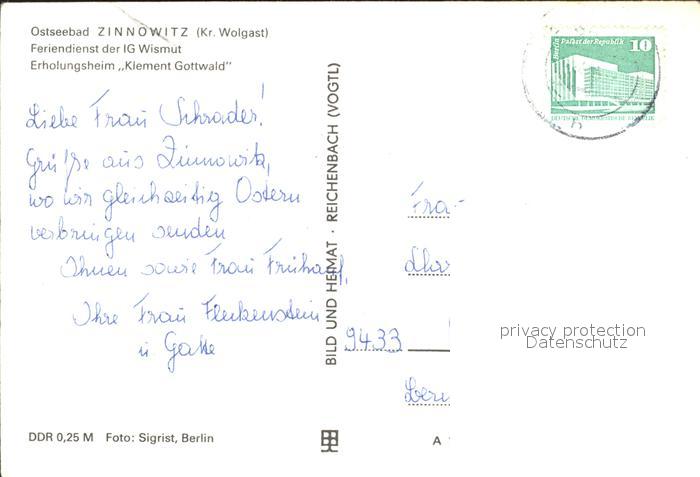 Ostseebad ZINNOWITZ (Kr. Wolgast)
Feriendienst der IG Wismut
Erholungsheim „Klement Gottwald"
Berlin Palast der Republik 10
DEUTSCHE DEMOKRATISCHE REPUBLIK
Liebe Frau Schrader!
Grüße aus Zinnowitz,
wo wir gleichzeitig Ostern
verbringen senden
Ihnen sowie Frau Frühauf,
Ihre Frau Fleckenstein
u Gatte
BILD UND HEIMAT · REICHENBACH (VOGTL)
Fra
9433
privacy protection
Datenschutz
DDR 0,25 M Foto: Sigrist, Berlin
A